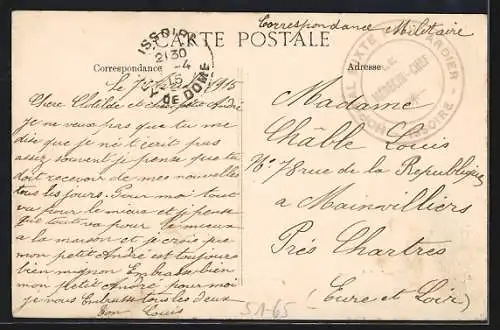 Correspondance Militaire
CARTE POSTALE
ISSOIRE
2130
-4
15
DE DOME
MEDECIN-CHEF
ISSOIRE
Correspondance
Adresse
le 1915
Chère Clotilde et cher petit André
je ne veux pas que tu me
dise que je ne t'ecrit pas
assez souvent je pense que tu
doit recevoir de mes nouvelles
tous les jours. Pour moi tout
va pour le mieux et je pense
que tout va pour le mieux
a la maison et je crois que
mon petit André est toujours
bien mignon Embrasse bien
mon petit André pour moi
je vous Embrasse tous les deux
ton Louis
Madame
Châble Louis
No 78 rue de la Republique
a Mainvilliers
Près Chartres
(Eure et Loir)
51-65